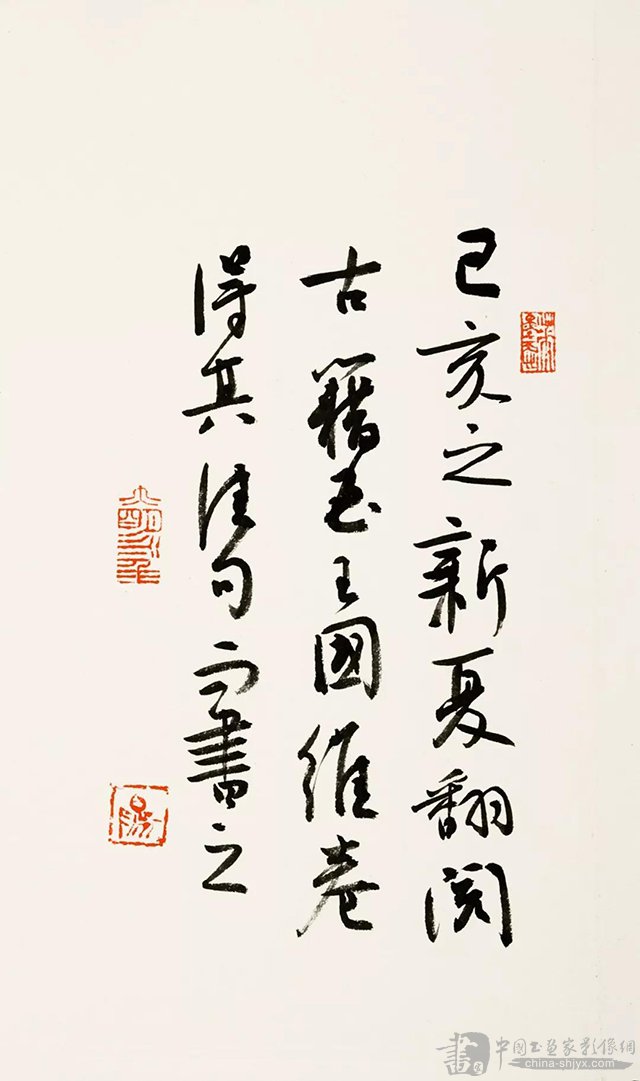 己亥之新夏翻阅
古籍至王國維卷
得其佳句而書之
書
中国书画家影像網
china-shjyx.com